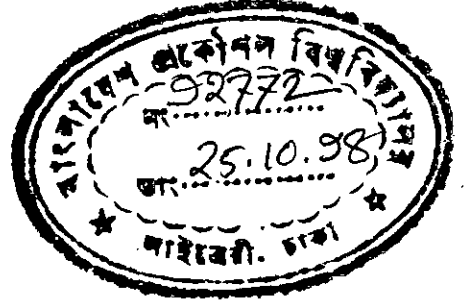 বাংলাদেশ প্রকৌশল বিশ্ববিদ্যালয়
নং......92772......
তাং......25.10.98......
লাইব্রেরী. ঢাকা